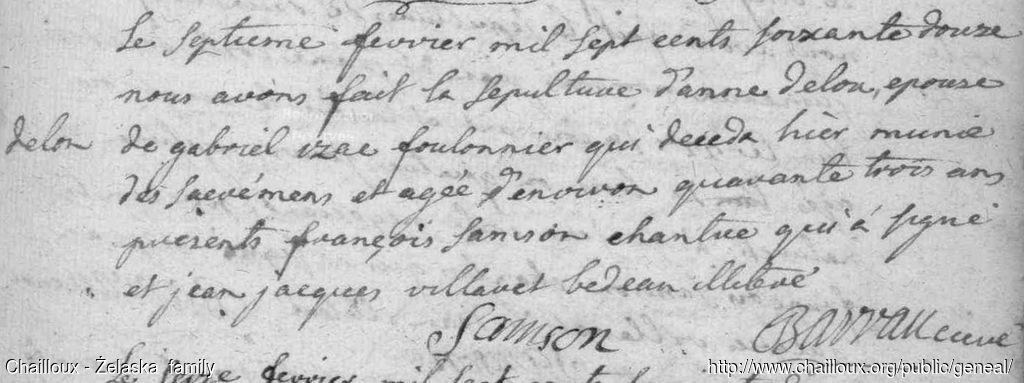 le septieme fevrier mil sept cents soixante douze
nous avons fait la sepulture d'anne delon, epouse
delon
de gabriel izac foulonnier qui deceda hièr munie
des sacrémens et agéé d'environ quarante trois ans
présents françois samson chantre qui á signé
et jean jacques villaret bedeau illitéré
Samson Barrau curé
le seize fevrier mil sept cents
Chailloux - Żelaska family
http://www.chailloux.org/public/geneal/